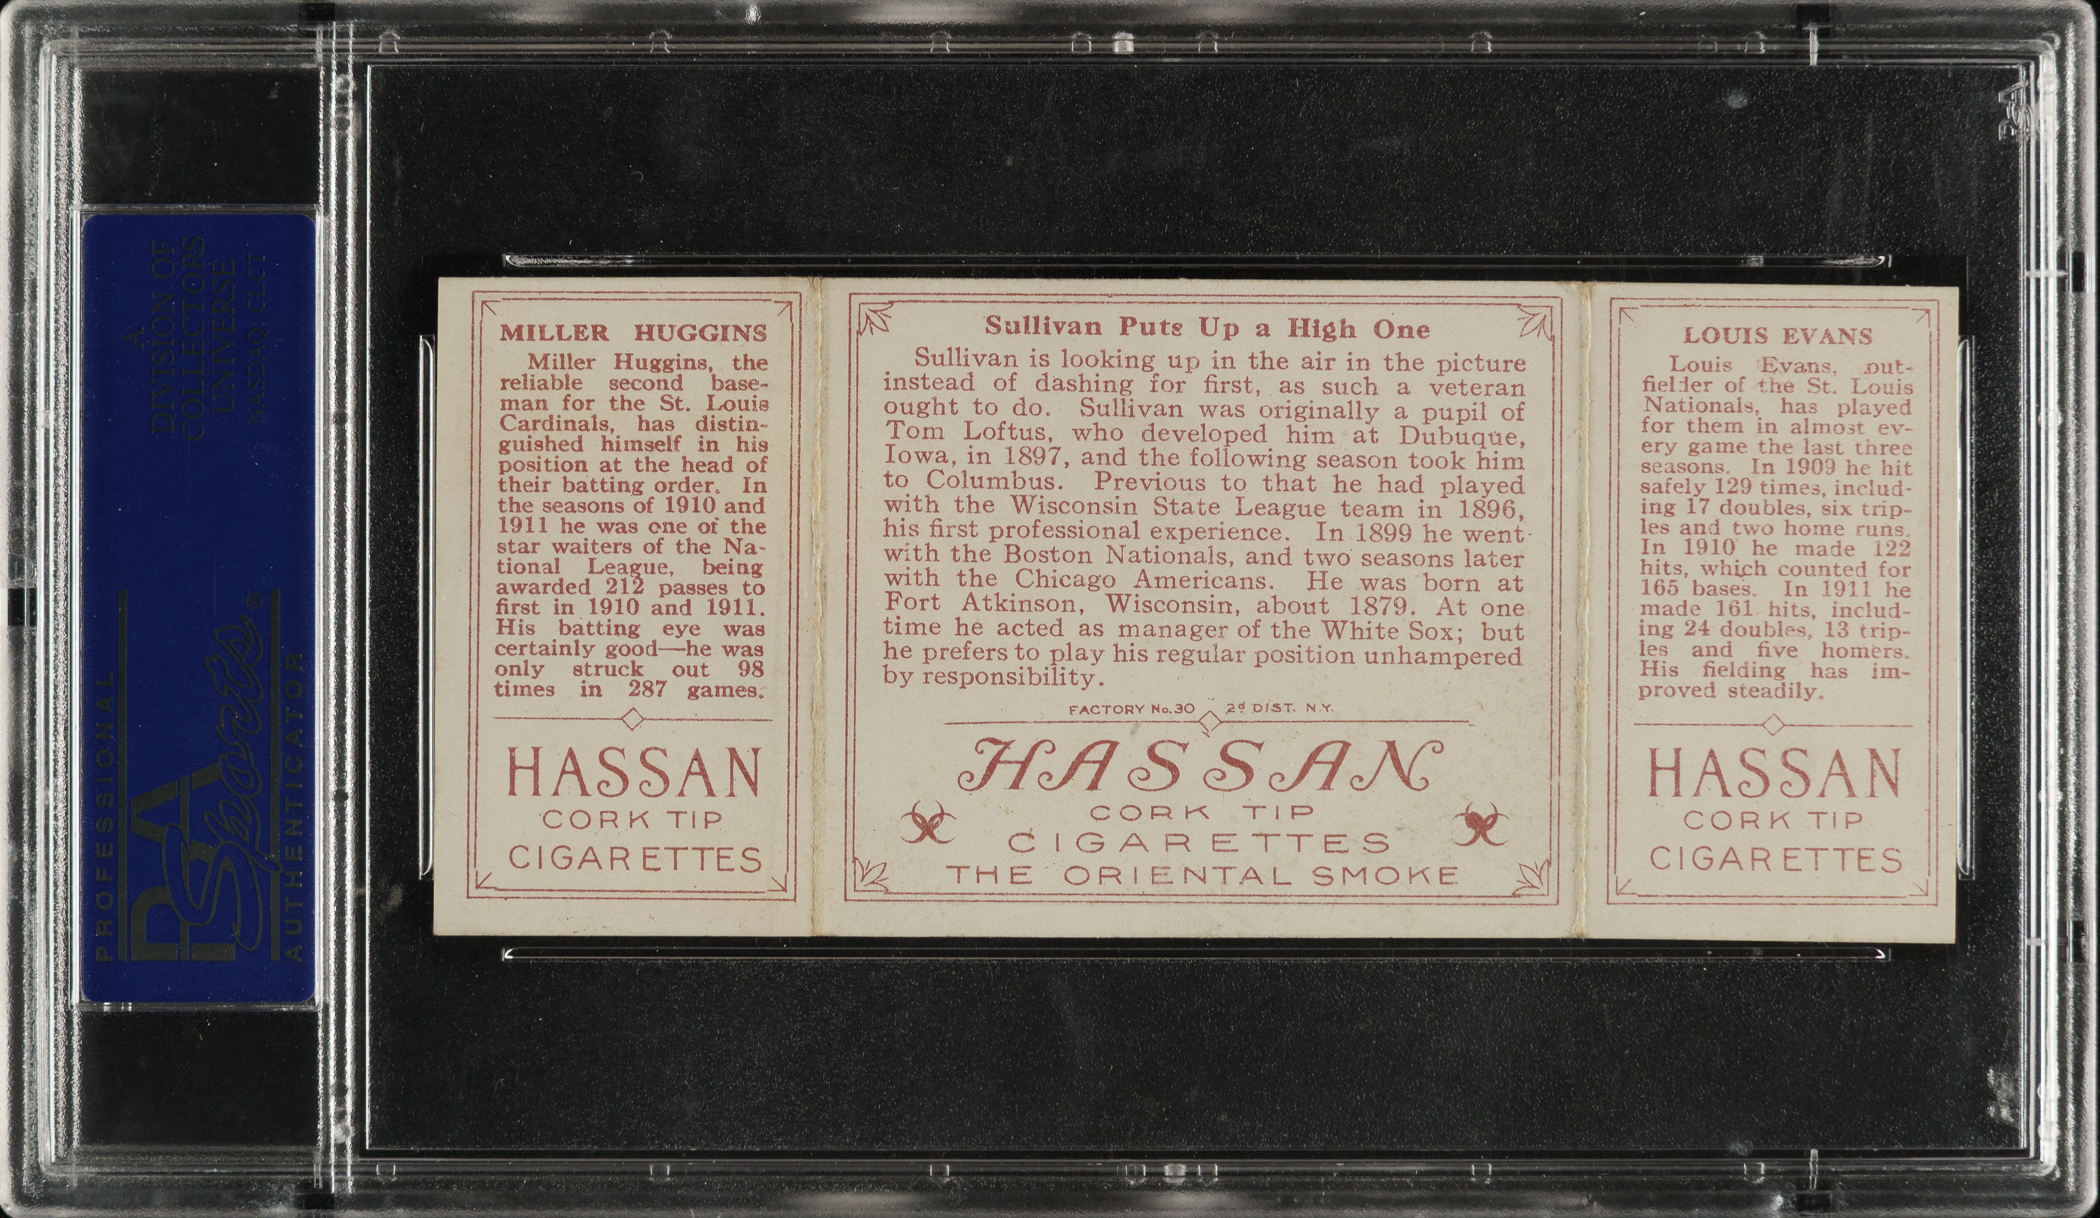 A
DIVISION OF
COLLECTORS
UNIVERSE
NASDAQ: CLCT
PROFESSIONAL
PSA
Sports®
AUTHENTICATOR
MILLER HUGGINS
Miller Huggins, the
reliable second base-
man for the St. Louis
Cardinals, has distin-
guished himself in his
position at the head of
their batting order. In
the seasons of 1910 and
1911 he was one of the
star waiters of the Na-
tional League, being
awarded 212 passes to
first in 1910 and 1911.
His batting eye was
certainly good—he was
only struck out 98
times in 287 games.
HASSAN
CORK TIP
CIGARETTES
Sullivan Puts Up a High One
Sullivan is looking up in the air in the picture
instead of dashing for first, as such a veteran
ought to do. Sullivan was originally a pupil of
Tom Loftus, who developed him at Dubuque,
Iowa, in 1897, and the following season took him
to Columbus. Previous to that he had played
with the Wisconsin State League team in 1896,
his first professional experience. In 1899 he went
with the Boston Nationals, and two seasons later
with the Chicago Americans. He was born at
Fort Atkinson, Wisconsin, about 1879. At one
time he acted as manager of the White Sox; but
he prefers to play his regular position unhampered
by responsibility.
FACTORY No. 30 2d DIST. N.Y.
HASSAN
CORK TIP
CIGARETTES
THE ORIENTAL SMOKE
LOUIS EVANS
Louis Evans, out-
fielder of the St. Louis
Nationals, has played
for them in almost ev-
ery game the last three
seasons. In 1909 he hit
safely 129 times, includ-
ing 17 doubles, six trip-
les and two home runs.
In 1910 he made 122
hits, which counted for
165 bases. In 1911 he
made 161 hits, includ-
ing 24 doubles, 13 trip-
les and five homers.
His fielding has im-
proved steadily.
HASSAN
CORK TIP
CIGARETTES
PSA